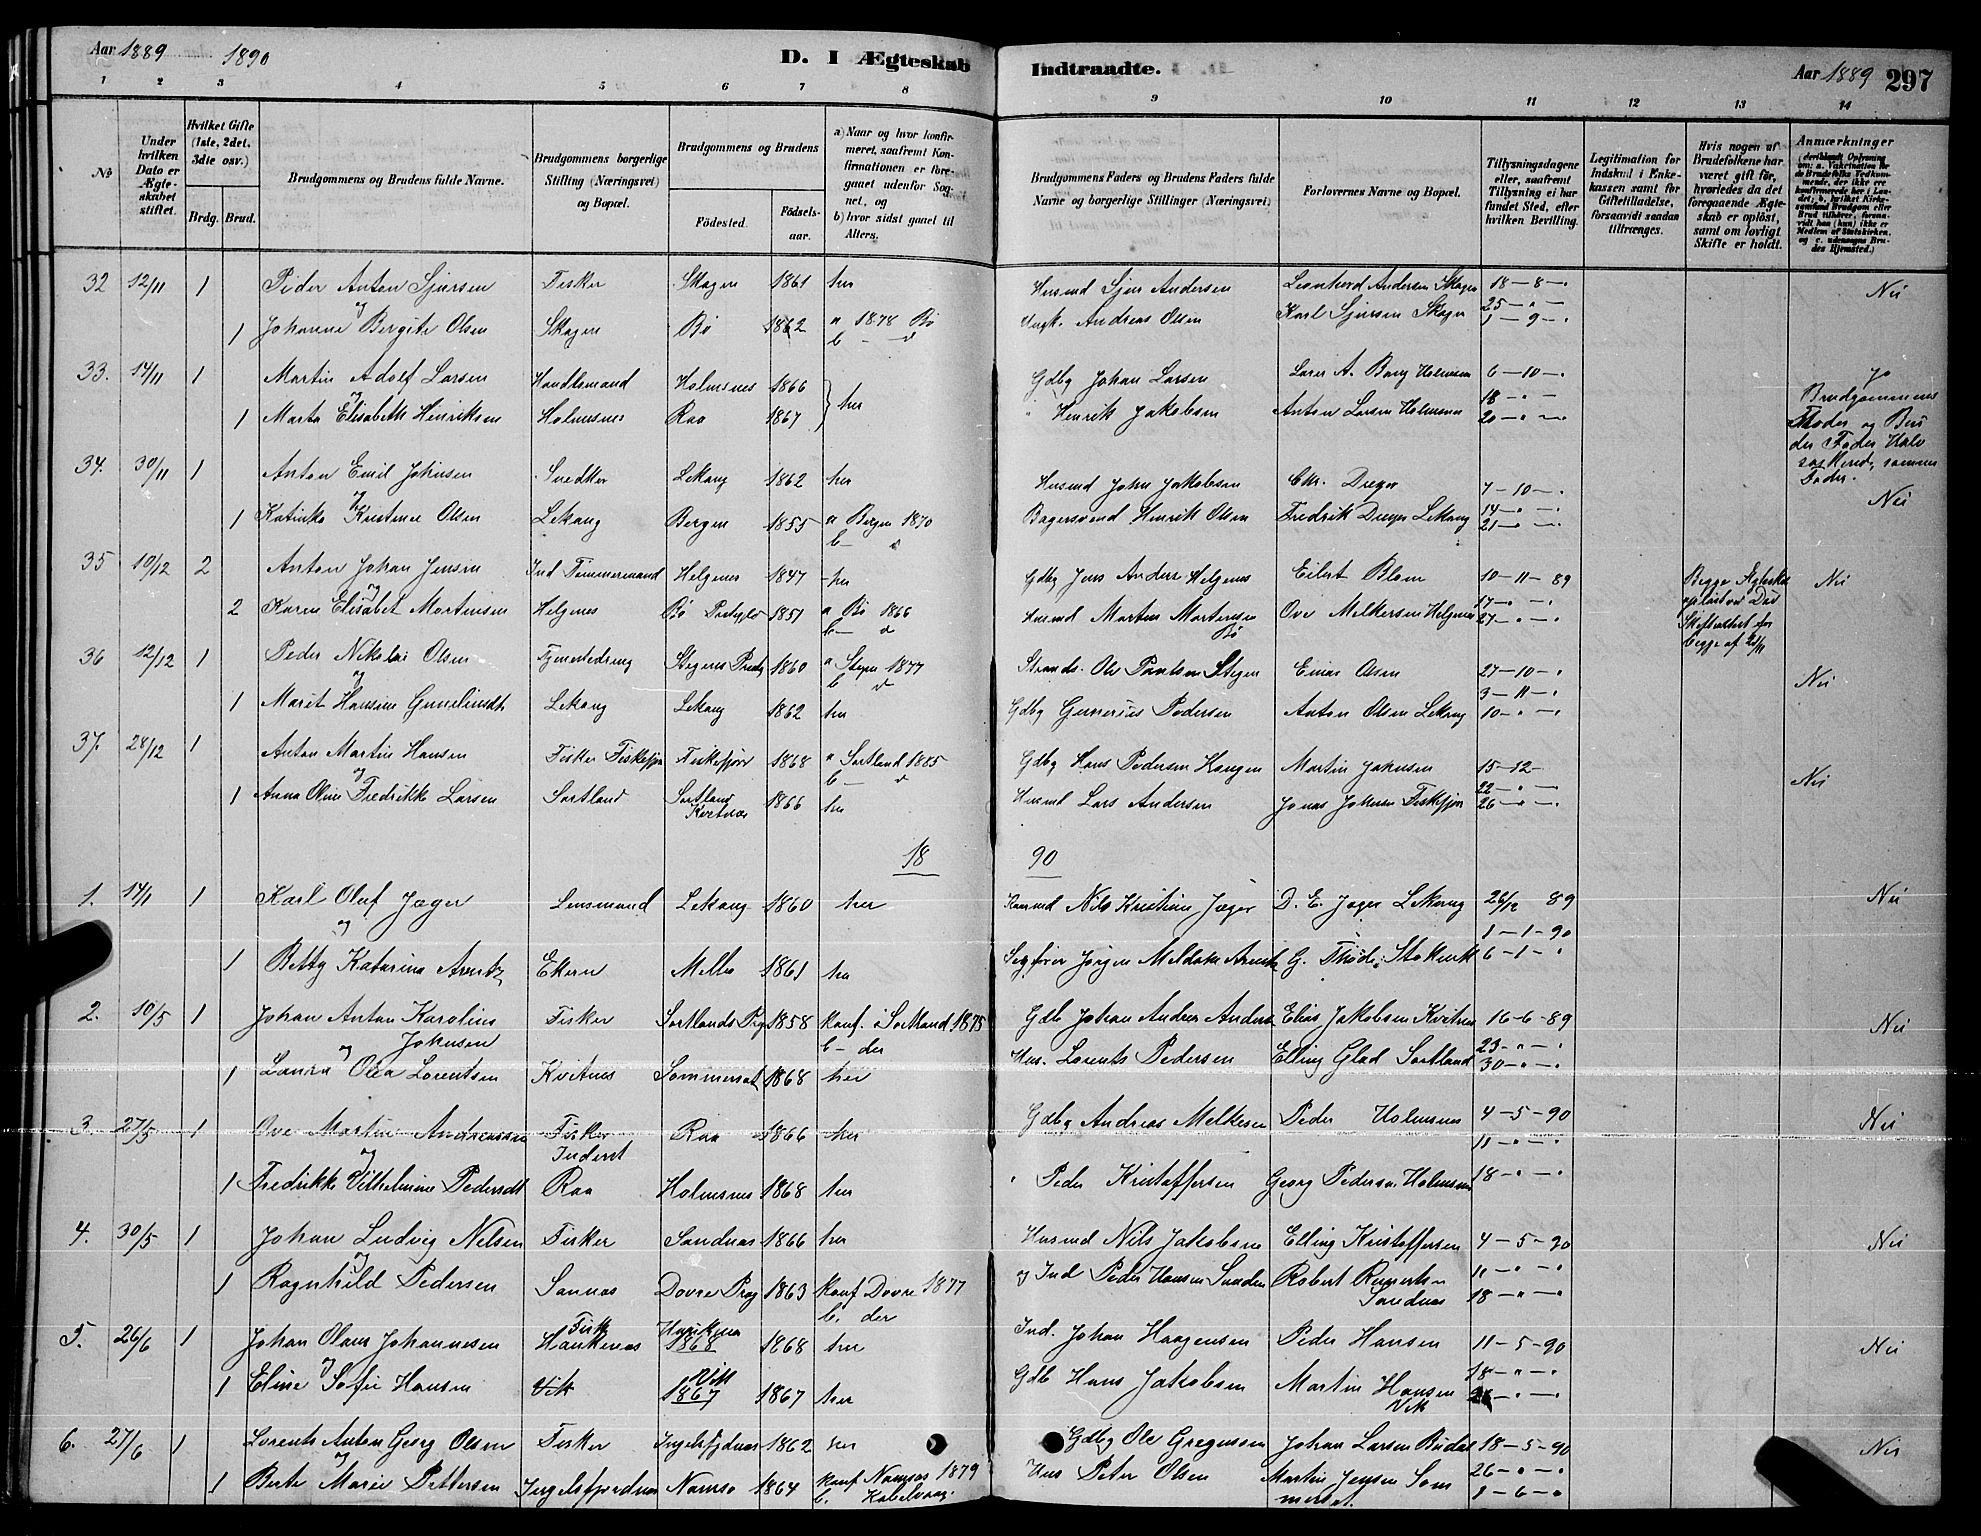 Aar 1889 1890 D. I Ægteskab Indtraadte. Aar 1889 297
1 2 3 4 5 6 7 8 9 10 11 12 13 14
No
Under hvilken Dato er Ægteskabet stiftet.
Hvilket Gifte (1ste, 2det, 3die osv.)
Brdg. Brud.
Brudgommens og Brudens fulde Navne.
Brudgommens borgerlige Stilling (Næringsvei) og Bopæl.
Brudgommens og Brudens
Födested. Födselsaar.
a) Naar og hvor konfirmeret, saafremt Konfirmationen er foregaaet udenfor Sognet, og b) hvor sidst gaaet til Alters.
Brudgommens Faders og Brudens Faders fulde Navne og borgerlige Stillinger (Næringsvei)
Forlovernes Navne og Bopæl.
Tillysningsdagene eller, saafremt Tillysning ei har fundet Sted, efter hvilken Bevilling.
Legitimation for Indskud i Enkekassen samt for Giftetilladelse, forsaavidt saadan tiltrænges.
Hvis nogen af Brudefolkene har været gift för, hvorledes da det foregaaende Ægteskab er oplöst, samt om lovligt Skifte er holdt.
Anmærkninger
32 12/11 1 Peder Anton Sjursen Fisker Skagen 1861 her Husmd Sjur Andersen Leonhard Andersen Skagen 18-8-" Nei
og
1 Johanna Bergite Olsen Skagen Bö 1862 a 1878 Bö Andreas Olsen Karl Sjursen Skagen 25-"-"
b - d 1-9-"
33. 14/11 1 Martin Adolf Larsen Handlemand Holmsnes 1866 her Gdbg Johan Larsen Lars A. Berg Holmsnes 6-10-" Jo
og
1 Marta Elisabeth Henriksen Holmsnes Raa 1867 " Henrik Jakobsen Anton Larsen Holmsnes 18-"-"
20-"-"
Brudgommens Moder og Brudens Fader Halvsöskend, samme Fader.
34. 30/11 1 Anton Emil Johnsen Snedker Lekang 1862 her Husmd John Jakobsen Chr. Dreyer 7-10-" Nei
og
1 Katinka Kristense Olsen Lekang Bergen 1855 a Bergen 1870 Bagersvend Henrik Olsen Fredrik Dreyer Lekang 14-"-"
b - d 21-"-"
35 10/12 2 Anton Johan Jensen Ind Tømmermand Helgenes 1847 her Gdbg Jens Anders Helgenes Eilert Blom 10-11-89 Nei
og
2 Karen Elisabet Martinsen Helgenes Bö 1851 a Bö 1866 Husmd Morten Mortensen Bö Ove Melkersen Helgenes 17-"-"
b - d 27-"-"
Begge Ægteskab oplöst ved Död Skifteattest for begge af 21/11
36 12/12 1 Peder Nikolai Olsen Tjenestedreng Stegens Prstg 1860 a Stegen 1877 Strands. Ole Paulsen Stegen Einar Olsen 27-10-" Nei
og b d 3-11-"
1 Marit Hansine Gunelinsdt Lekang Lekang 1862 her Gdbg Gunerius Pedersen Anton Olsen Lekang 10-"-"
37. 28/12 1 Anton Martin Hansen Fisker Fiskefjor Fiskefjor 1868 a Sortland 1885 Gdbg Hans Pedersen Haugen Martin Johnsen 15-12- Nei
og b - d 22-"-"
1 Anna Oline Fredrikke Larsen Sortland Sortland Kvitnes 1866 her Husmd Lars Andersen Jonas Johnsen Fiskefjor 26-"-"
18 90
1. 14/1 1 Karl Oluf Jæger Lensmand Lekang 1860 her Nils Kristian Jæger D. E. Jæger Lekang 26/12 89 Nei
og 1-1-90
1 Betty Katarina Arentz Ekern Melbo 1861 her Jörgen Meldahl Arentz G. Thöde, Stokmk 6-1-"
2. 10/5 1 Johan Anton Karolius Johnsen Fisker Sortlands Pg 1858 konf. i Sortland 1875 Gdb Johan Andrea Anders Elias Jakobsen Kvitnes 16-6-89 Nei
og b - der 23-"-"
1 Laura Olea Lorentsen Kvitnes Sommerset 1868 her Hus. Lorents Pedersen Elling Glad Sortland 30-"-"
3. 27/5 1 Ove Martin Andreassen Fisker Inderst Raa 1866 her Gdbg Andreas Melkesen Peder Holmsnes 4-5-90 Nei
og 11-"-"
1 Fredrikke Vilhelmine Pedersdt Raa Holmsnes 1868 her " Peder Kristoffersen Georg Pedersen Holmsnes 18-"-"
4. 30/5 1 Johan Ludvig Nilsen Fisker Sandnes 1866 her Husmd Nils Jakobsen Elling Kristoffersen 4-5-90 Nei
og
1 Ragnhild Pedersen Sannes Dovre Prag 1863 konf Dovre 1877 og Ind Peder Hansen Sanden Robert Reinertsen Sandnes 11-"-"
b. der 18-"-"
5. 26/6 1 Johan Olaus Johannesen Fisk Haukenes Haukenes 1868 1868 her Ind. Johan Haagensen Peder Hansen 11-5-90 Nei
og 18-"-"
1 Eline Sofie Hansen Vik Vik 1867 1867 her Gdb Hans Jakobsen Martin Hansen Vik
6. 27/6 1 Lorents Anton Georg Olsen Fisker Ingelsfjdnes 1862 her Gdbg Ole Gregussen Johan Larsen Budal 18-5-90 Nei
og
1 Berte Marie Pettersen Ingelsfjordnes Namsos 1864 konf Namsos 1879 Hus Peter Olsen Martin Jensen Sommerset 26-"-"
b. Kabelvaag. 1-6-"